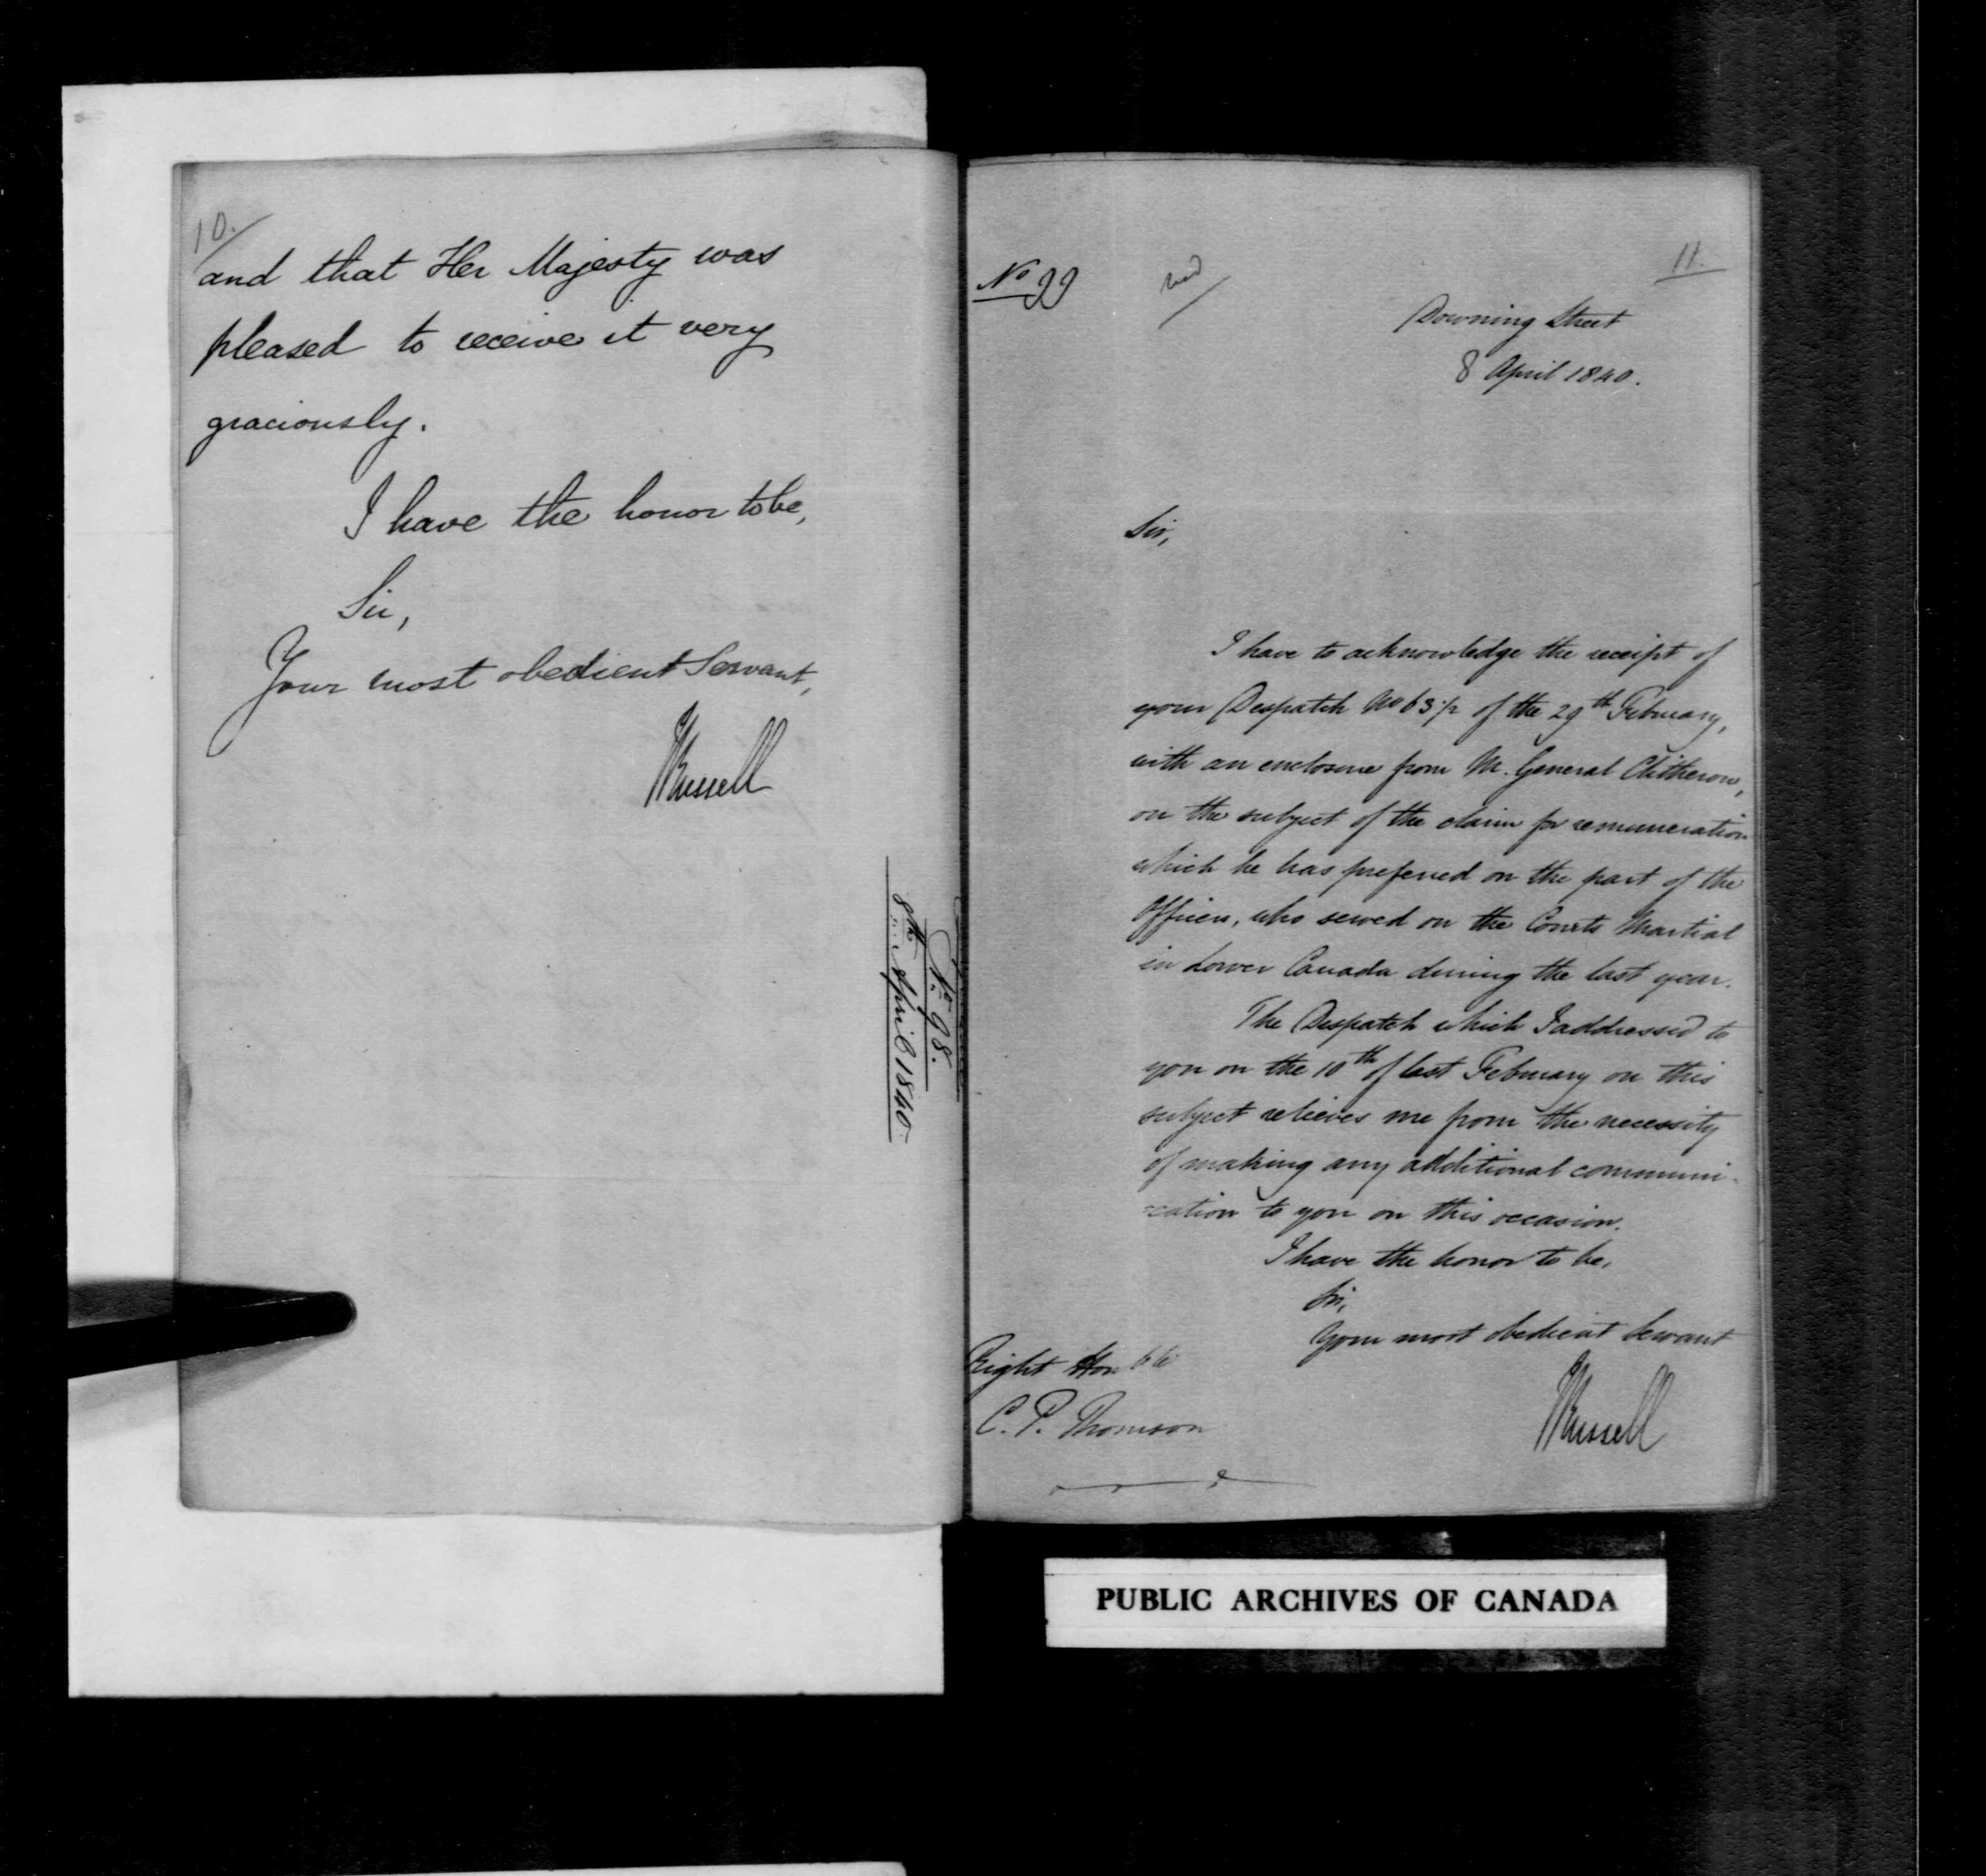 10.
and that Her Majesty was
pleased to receive it very
graciously.
I have the honor to be,
Sir,
Your most obedient Servant,
JRussell
No. 98.
8th April 1840
No 99
11.
Downing Street
8 April 1840.
Sir,
I have to acknowledge the receipt of
your Despatch No 63 1/2 of the 29th February,
with an enclosure from M. General Clitherow,
on the subject of the claim for remuneration
which he has preferred on the part of the
Officers, who served on the Courts Martial
in Lower Canada during the last year.
The Despatch which I addressed to
you on the 10th of last February on this
subject relieves me from the necessity
of making any additional communi-
cation to you on this occasion.
I have the honor to be,
Sir,
Your most obedient Servant
JRussell
Right Honble
C. P. Thomson
PUBLIC ARCHIVES OF CANADA